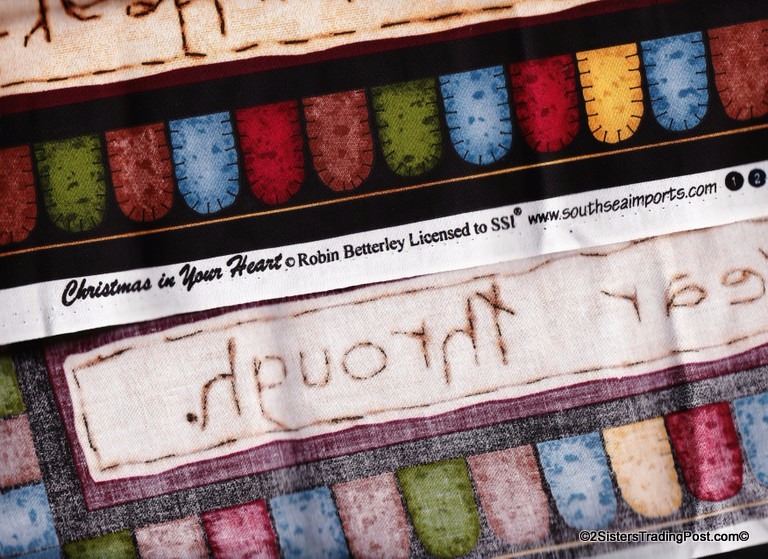 Christmas in Your Heart © Robin Betterley Licensed to SSI® www.southseaimports.com 1 2
through.
©2SistersTradingPost.com©